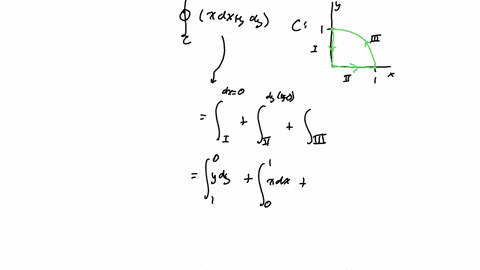 ∮ (x dx + y dy)   C:
c
y
1
I
III
II
1
x
dx=0   dy (y=0)
= ∫_I + ∫_II + ∫_III
= ∫_1^0 y dy + ∫_0^1 x dx +